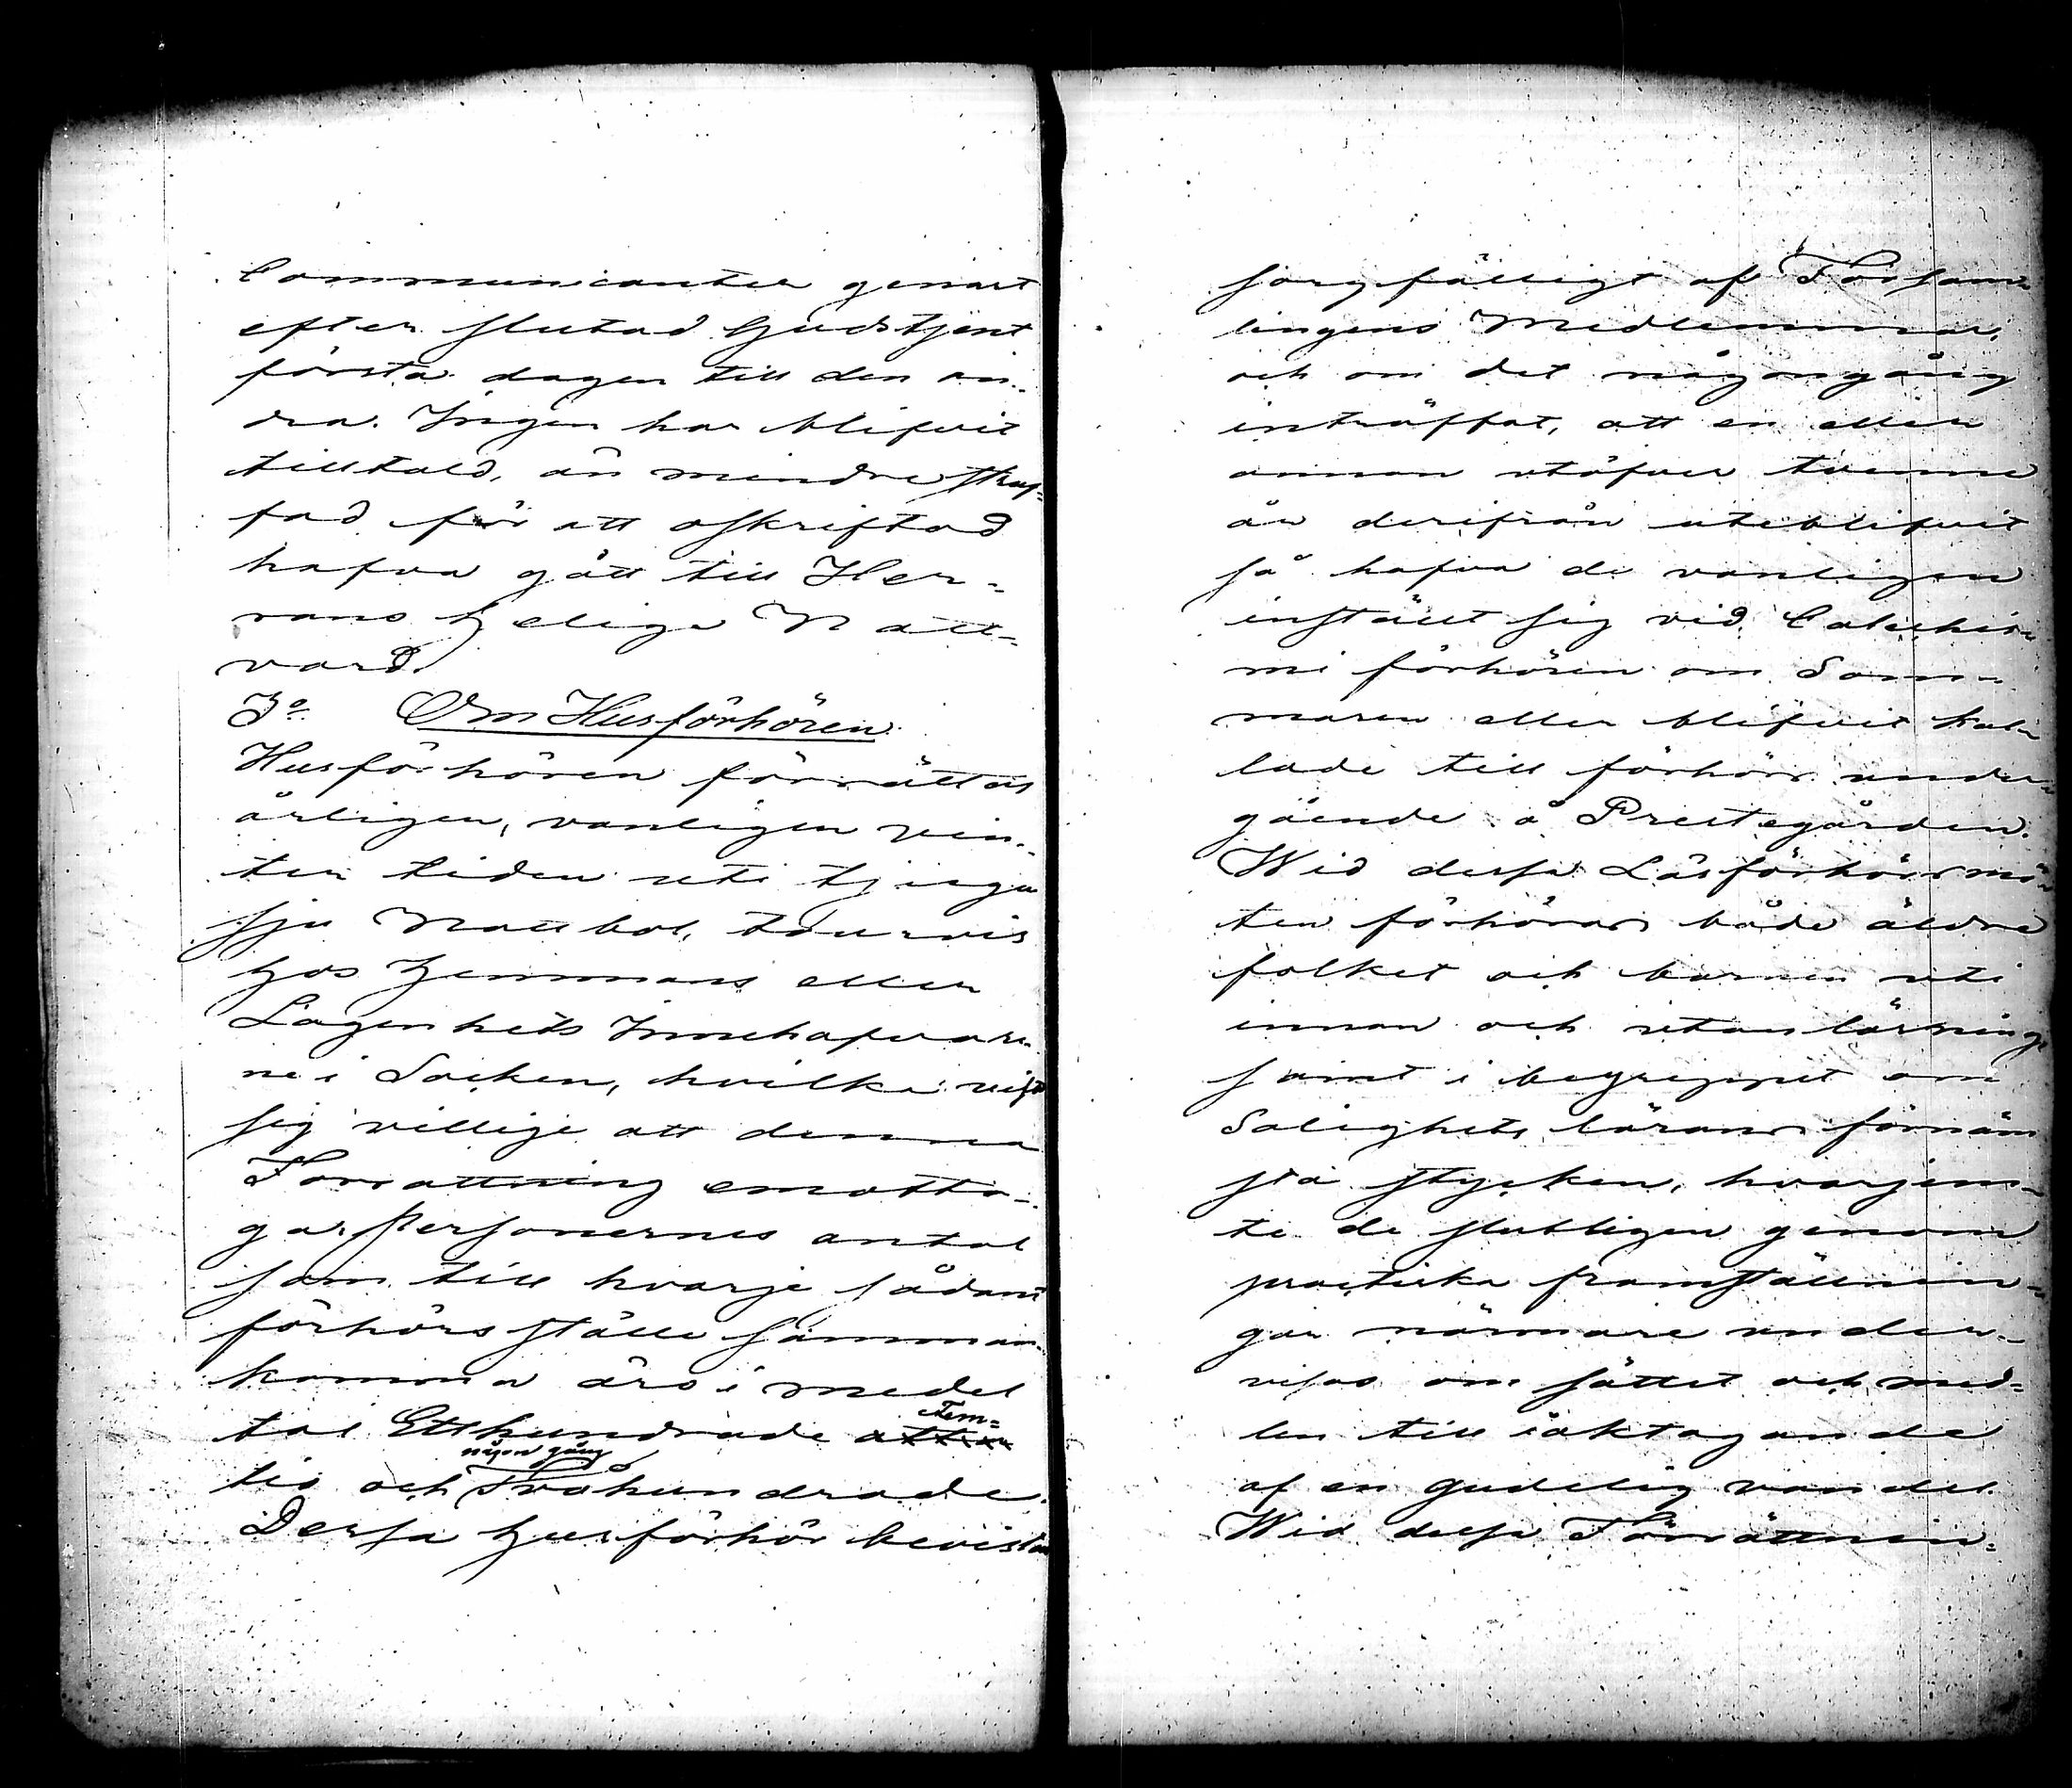 Communicanter genast
efter slutad Gudstjenst
första dagen till den an-
dra. Ingen har blifvit
tilltald, än mindre straf-
fad för att oskriftad
hafva gått till Her-
rans Helige Natt-
vard.
3o. Om Husförhören.
Husförhören förrättas
årligen, vanligen vin-
ter tiden uti tjugu
sju Mattbol, tourvis
hos Hemmans eller
Lägenhets Innehafvare-
ne i Socken, hvilka vist
sig villige att denna
Förrattning emotta-
ga. Personernes antal
som till hvarje sådant
förhörs ställe samman-
komma äro i medel
tal Etthundrade Fem=
tio och någon gång Tvåhundrade.
Dessa Husförhör bevistas
sorgfälligt af Försam-
lingens Medlemmar,
och om det någongång
inträffat, att en eller
annan utöfver tvenne
år derifrån uteblifvit
så hafva de vanligen
instält sig vid Catechis-
mi förhören om Som-
maren eller blifvit kal-
lade till förhörs under-
gående å Prestegården.
Wid dessa Läsförhörsmö-
ten förhöras både äldre
folket och barnen uti
innan och utanläsning
samt i begreppet om
Salighets lärans förnäm
sta stycken, hvarjem-
te de slutligen genom
practiska framställnin-
gar närmare under-
visas om sättet och med-
len till iakttagande
af en gudelig vandel.
Wid dessa Förrättnin-